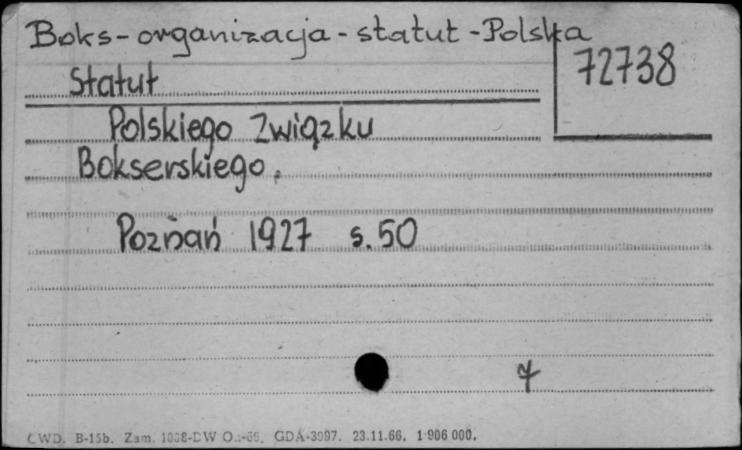 Boks - organizacja - statut - Polska
72738
Statut
Polskiego Związku
Bokserskiego.
Poznań 1927 s. 50
7
CWD. B-15b. Zam. GDA-3097. 23.11.66. 1 906 000.